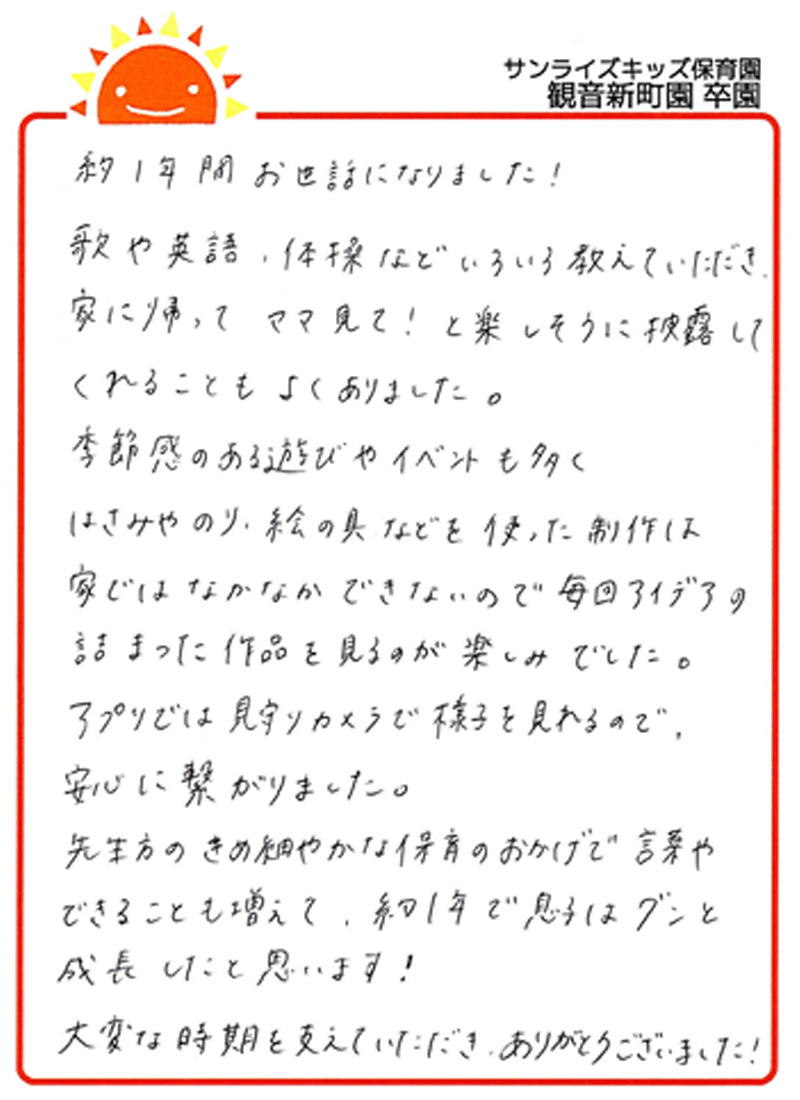 サンライズキッズ保育園
観音新町園 卒園
約1年間 お世話になりました!
歌や英語、体操などいろいろ教えていただき、
家に帰って ママ見て!と楽しそうに披露して
くれることもよくありました。
季節感のある遊びやイベントも多く
はさみやのり、絵の具などを使った制作は
家ではなかなかできないので毎回アイデアの
詰まった作品を見るのが楽しみでした。
アプリでは見守りカメラで様子を見れるので、
安心に繋がりました。
先生方のきめ細やかな保育のおかげで言葉や
できることも増えて、約1年で息子はグンと
成長したと思います!
大変な時期を支えていただき、ありがとうございました!